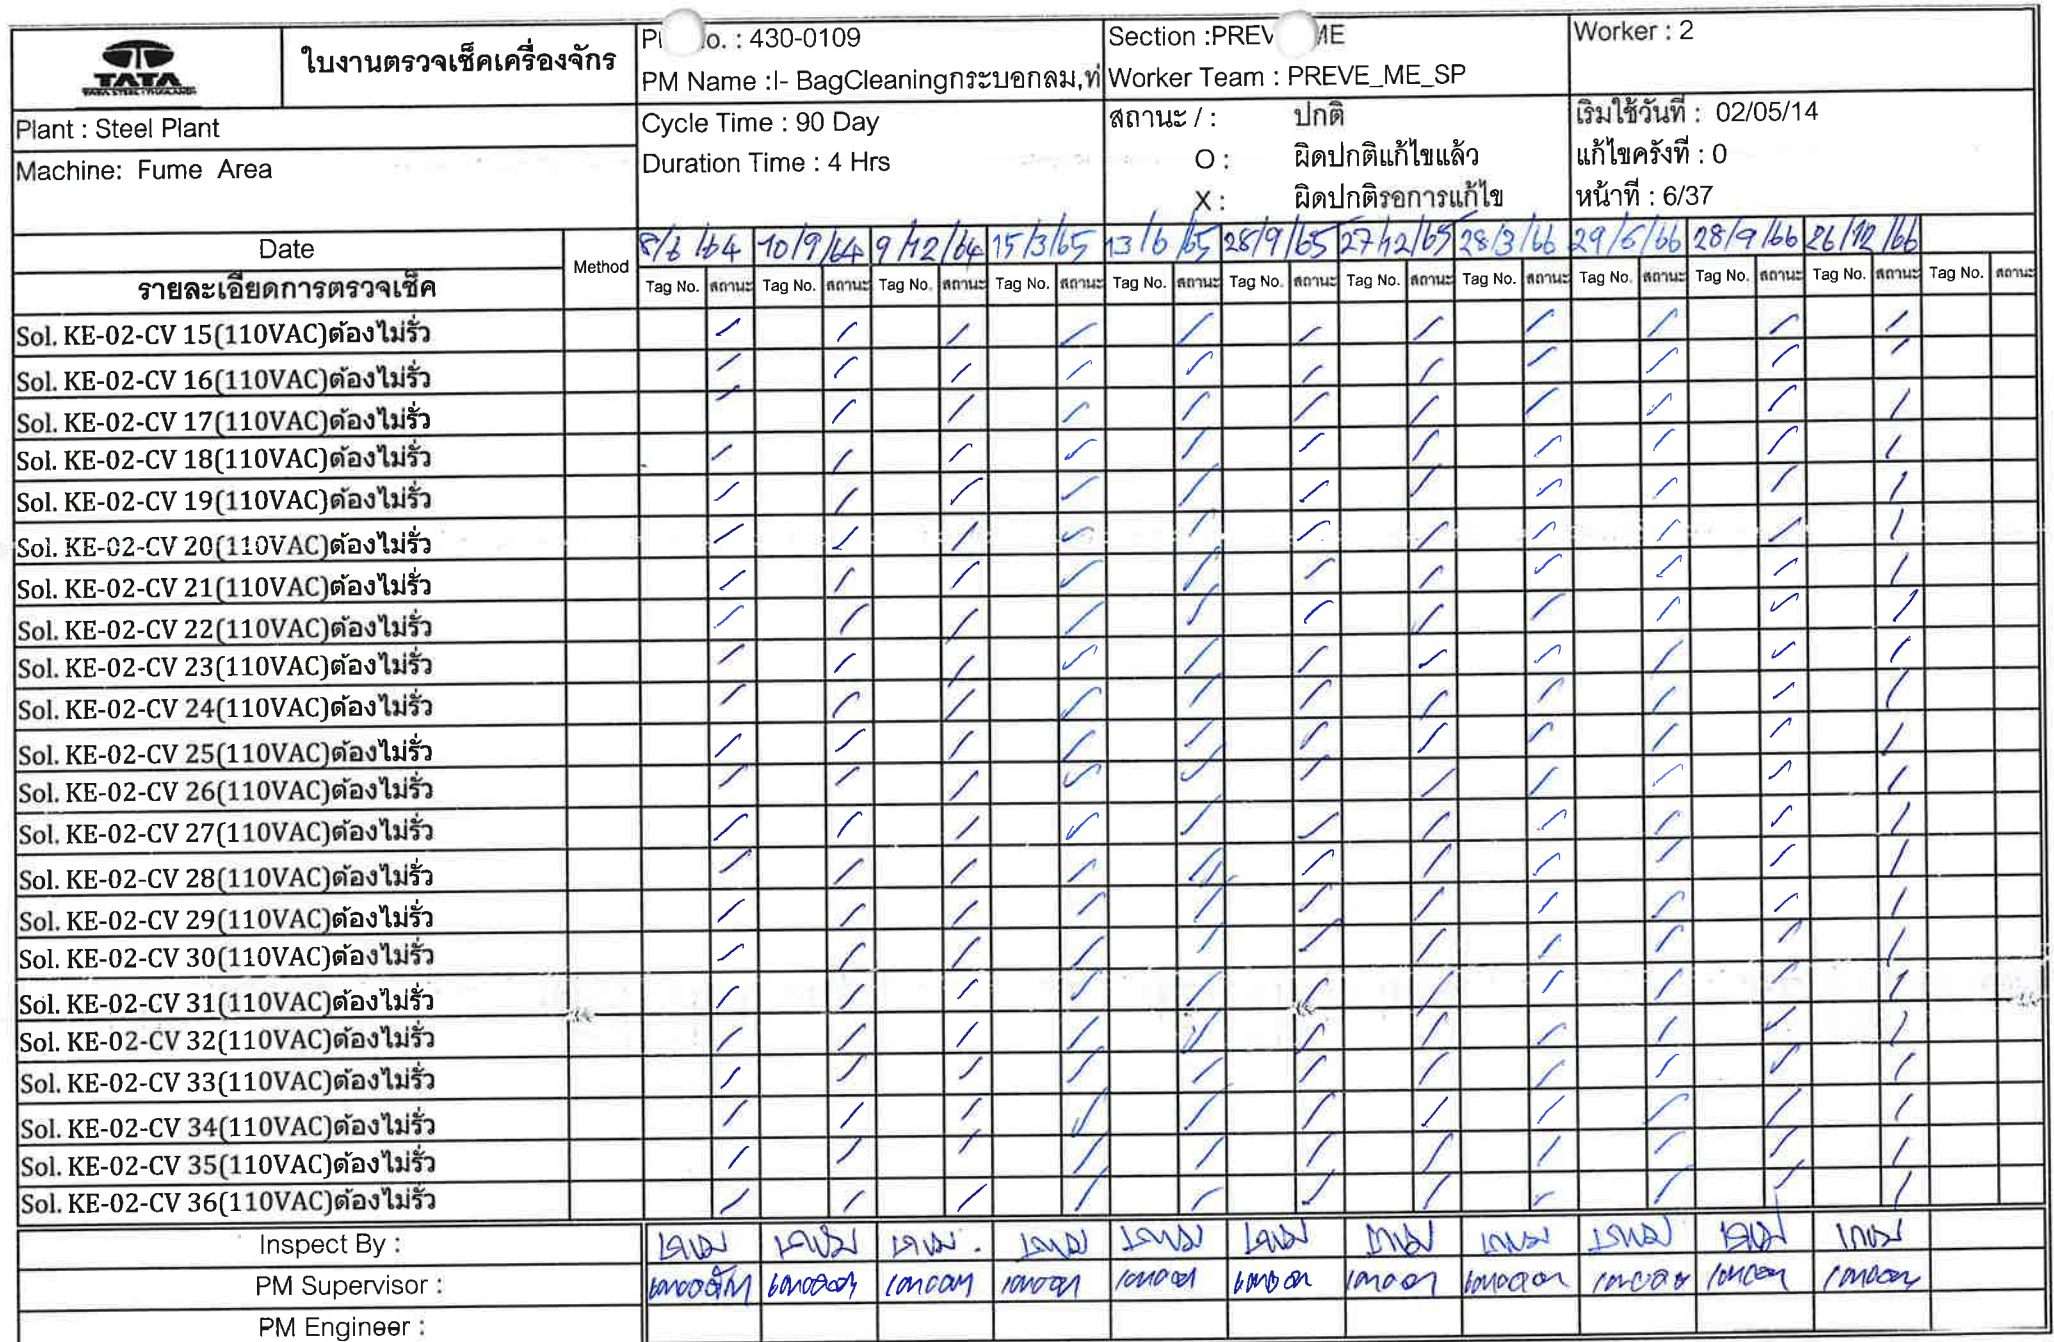 TATA
TATA STEEL (THAILAND)
ใบงานตรวจเช็คเครื่องจักร
o. : 430-0109
Section :PREV ME
Worker : 2
PM Name :I- BagCleaningกระบอกลม,ท่
Worker Team : PREVE_ME_SP
Plant : Steel Plant
Cycle Time : 90 Day
สถานะ / : ปกติ
เริ่มใช้วันที่ : 02/05/14
Machine: Fume Area
Duration Time : 4 Hrs
O : ผิดปกติแก้ไขแล้ว
แก้ไขครั้งที่ : 0
X : ผิดปกติรอการแก้ไข
หน้าที่ : 6/37
Date Method 8/6/64 10/9/64 9/12/64 15/3/65 13/6/65 28/9/65 27/12/65 28/3/66 29/6/66 28/9/66 26/12/66
รายละเอียดการตรวจเช็ค Tag No. สถานะ Tag No. สถานะ Tag No. สถานะ Tag No. สถานะ Tag No. สถานะ Tag No. สถานะ Tag No. สถานะ Tag No. สถานะ Tag No. สถานะ Tag No. สถานะ Tag No. สถานะ Tag No. สถานะ
Sol. KE-02-CV 15(110VAC)ต้องไม่รั่ว / / / / / / / / / / /
Sol. KE-02-CV 16(110VAC)ต้องไม่รั่ว / / / / / / / / / / /
Sol. KE-02-CV 17(110VAC)ต้องไม่รั่ว / / / / / / / / / / /
Sol. KE-02-CV 18(110VAC)ต้องไม่รั่ว / / / / / / / / / / /
Sol. KE-02-CV 19(110VAC)ต้องไม่รั่ว / / / / / / / / / / /
Sol. KE-02-CV 20(110VAC)ต้องไม่รั่ว / / / / / / / / / / /
Sol. KE-02-CV 21(110VAC)ต้องไม่รั่ว / / / / / / / / / / /
Sol. KE-02-CV 22(110VAC)ต้องไม่รั่ว / / / / / / / / / / /
Sol. KE-02-CV 23(110VAC)ต้องไม่รั่ว / / / / / / / / / / /
Sol. KE-02-CV 24(110VAC)ต้องไม่รั่ว / / / / / / / / / / /
Sol. KE-02-CV 25(110VAC)ต้องไม่รั่ว / / / / / / / / / / /
Sol. KE-02-CV 26(110VAC)ต้องไม่รั่ว / / / / / / / / / / /
Sol. KE-02-CV 27(110VAC)ต้องไม่รั่ว / / / / / / / / / / /
Sol. KE-02-CV 28(110VAC)ต้องไม่รั่ว / / / / / / / / / / /
Sol. KE-02-CV 29(110VAC)ต้องไม่รั่ว / / / / / / / / / / /
Sol. KE-02-CV 30(110VAC)ต้องไม่รั่ว / / / / / / / / / / /
Sol. KE-02-CV 31(110VAC)ต้องไม่รั่ว / / / / / / / / / / /
Sol. KE-02-CV 32(110VAC)ต้องไม่รั่ว / / / / / / / / / / /
Sol. KE-02-CV 33(110VAC)ต้องไม่รั่ว / / / / / / / / / / /
Sol. KE-02-CV 34(110VAC)ต้องไม่รั่ว / / / / / / / / / / /
Sol. KE-02-CV 35(110VAC)ต้องไม่รั่ว / / / / / / / / / / /
Sol. KE-02-CV 36(110VAC)ต้องไม่รั่ว / / / / / / / / / / /
Inspect By :
PM Supervisor :
PM Engineer :